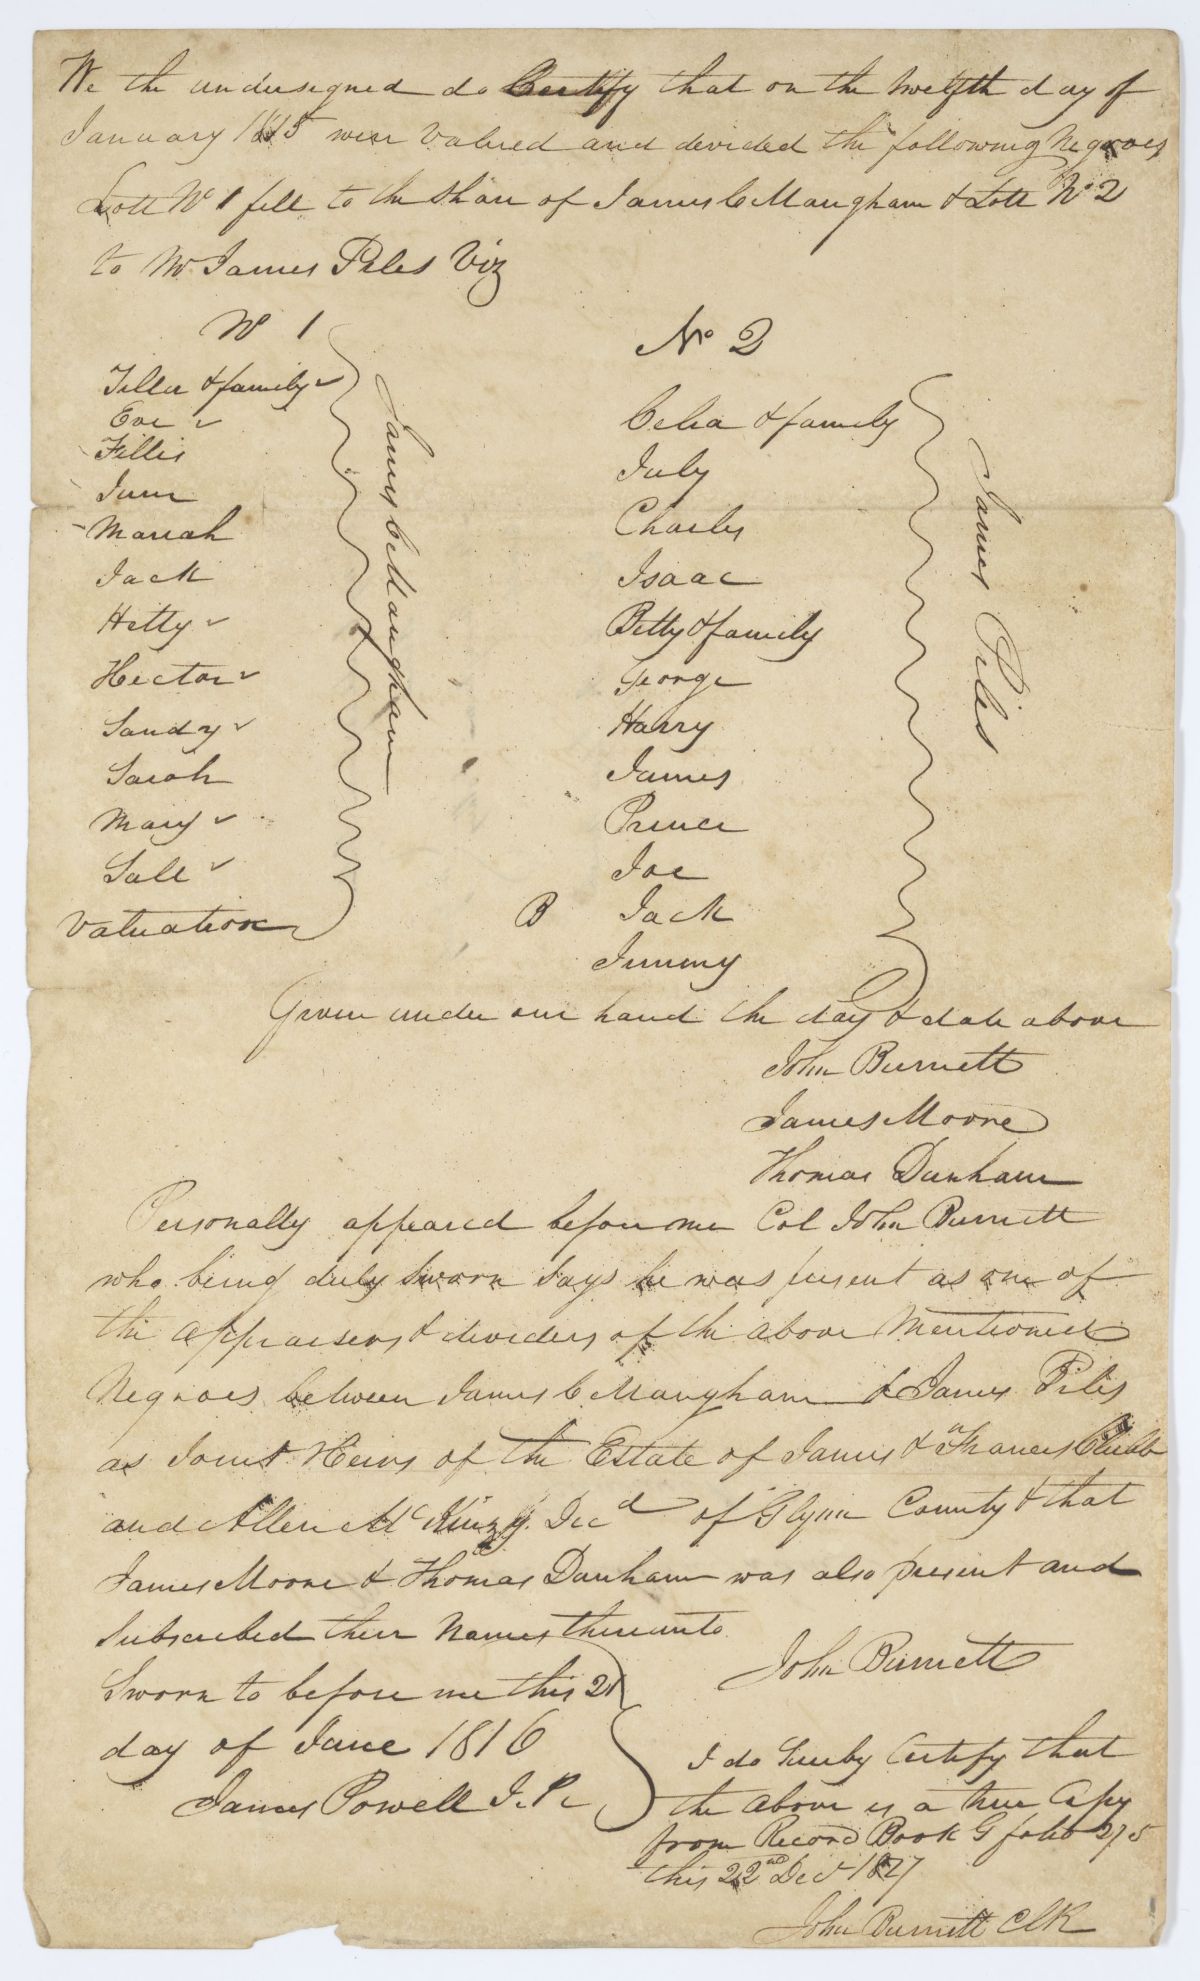 We the undersigned do Certify that on the twelfth day of
January 1815 were valued and devided the following Negroes
Lott No 1 fell to the Share of James C Mangham & Lott No 2
to Mr James Piles Viz
No 1
Tiller & family
Eve
Fillis
June
Mariah
Jack
Hetty
Hector
Sandy
Sarah
Mary
Sall
Valuation
James C Mangham
No 2
Celia & family
July
Charles
Isaac
Betty & family
George
Harry
James
Prince
Joe
B Jack
Jimmy
James Piles
Given under our hand the day & date above
John Burnett
James Moore
Thomas Dunham
Personally appeared before me Col John Burnett
who being duly Sworn Says he was present as one of
the appraisers & deviders of the above Mentioned
Negroes between James C Mangham & James Piles
as Joint Heirs of the Estate of James & Frances Clubb
and Allen McKinzy Decd of Glynn County & that
James Moore & Thomas Dunham was also present and
Subscribed their Names thereunto
John Burnett
Sworn to before me this 21
day of June 1816
James Powell J. P.
I do hereby Certify that
the above is a true Copy
from Record Book G folio 275
this 22nd Decr 1827
John Burnett Clk